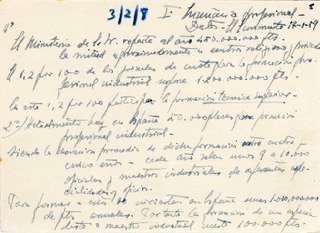 3/2/8
I- Enseñanza profesional-
Datos- 18-1-59
1º
El Ministerio de E. N. reparte al año 400.000.000 pts.
la mitad aproximadamente a centros religiosos y privados
El 1,2 por 100 de los jornales de cuota para la formación pro-
fesional industrial supone 1.200.000.000 pts.
la otra 1,2 por 100 participa la formación técnica superior-
2º/ Actualmente hay en España 40.000 plazas para formación
profesional industrial-
Siendo la duración promedio de dicha formación entre cuatro y
cinco años - cada año salen unos 9 a 10.000
oficiales y maestros industriales de diferentes espe-
cialidades y oficios.
Para formar a estos se invierten en España unos 1.000.000.000
de pts. anuales. Por tanto la formación de un especia-
lista o maestro industrial cuesta 100.000 pts.